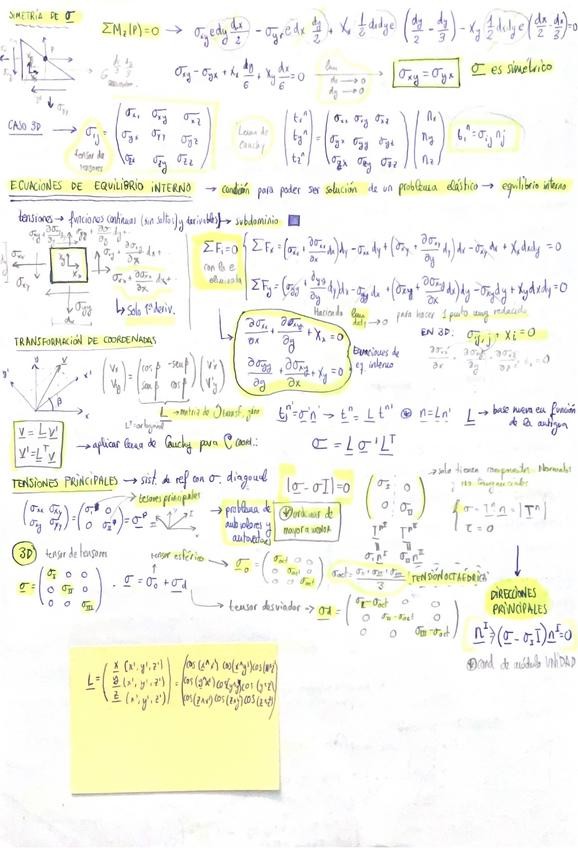 SIMETRÍA DE σ
ΣM₂(P)=0 → σxy e dy dx/2 - σyx e dx dy/2 + Xx 1/2 dxdy e (dy/2 - dy/3) - Xy 1/2 dxdy e (dx/2 - dx/3)=0
σxy - σyx + Xx dy/6 + Xy dx/6 = 0 lim dx→0 dy→0 → σxy = σyx σ es simétrico
CASO 3D → σij = (σxx σxy σxz σyx σyy σyz σzx σzy σzz) Lema de Cauchy (txⁿ tyⁿ tzⁿ) = (σxx σxy σxz σyx σyy σyz σzx σzy σzz) (nx ny nz) tiⁿ = σij nj
tensor de tensores
ECUACIONES DE EQUILIBRIO INTERNO → condición para poder ser solución de un problema elástico → equilibrio interno
tensiones → funciones continuas (sin saltos) y derivables → subdominio
ΣFi=0
ΣFx = (σxx + ∂σxx/∂x dx)dy - σxx dy + (σxy + ∂σxy/∂y dy)dx - σxy dx + Xx dxdy = 0
ΣFy = (σyy + ∂σyy/∂y dy)dx - σyy dx + (σxy + ∂σxy/∂x dx)dy - σxy dy + Xy dxdy = 0
σxx + ∂σxx/∂x dx + ...
Solo 1ª deriv.
Haciendo lim dxdy → 0 para hacer 1 punto muy reducido
∂σxx/∂x + ∂σxy/∂y + Xx = 0
∂σyy/∂y + ∂σxy/∂x + Xy = 0
Ecuaciones de eq. interno
EN 3D: σij,j + Xi = 0
TRANSFORMACIÓN DE COORDENADAS
(Vx Vy) = (cos β -sen β sen β cos β) (V'x V'y)
L → matriz de transf.
V = L V'
V' = Lᵀ V
tⁿ' = σ' n' → tⁿ = L tⁿ' n = L n' L → base nueva en función de la antigua
→ aplicar lema de Cauchy para C coord.: σ = L σ' Lᵀ
TENSIONES PRINCIPALES → sist. de ref con σ diagonal
|σ - σI| = 0
tensores principales
→ problema de autovalores y autovectores
ordenar de mayor a menor
→ solo tienen componentes Normales No tangenciales
σ = Tⁿ n = |Tⁿ|
τ = 0
3D tensor de tensores
σ = (σI 0 0 0 σII 0 0 0 σIII) · σ = σo + σd
tensor esférico → σo = (σoct 0 0 0 σoct 0 0 0 σoct) σoct = σI + σII + σIII / 3 TENSIÓN OCTAÉDRICA
→ tensor desviador → σd = (σI - σoct 0 0 0 σII - σoct 0 0 0 σIII - σoct)
DIRECCIONES PRINCIPALES
nᴵ → (σ - σI I) nᴵ = 0
cond. de módulo UNIDAD
L = (x (x', y', z') y (x', y', z') z (x', y', z')) = (cos(x^x') cos(x^y') cos(x^z') cos(y^x') cos(y^y') cos(y^z') cos(z^x') cos(z^y') cos(z^z'))